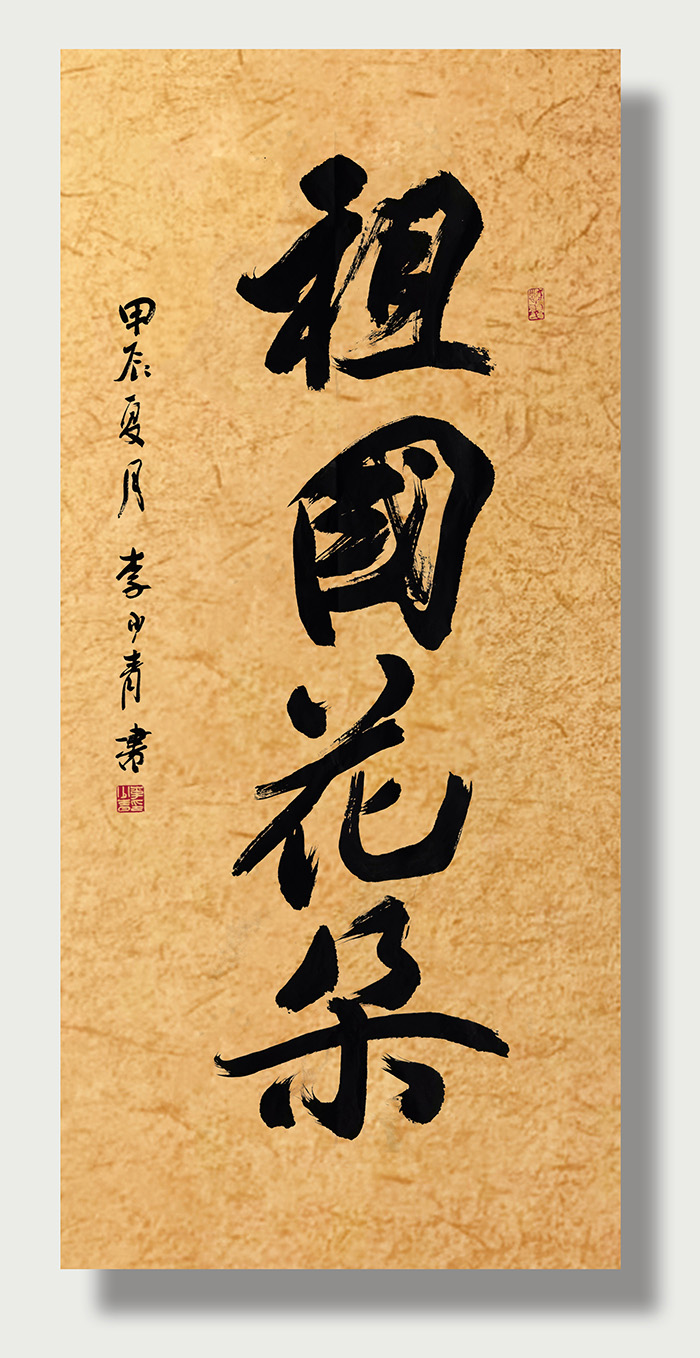 祖國花朵
甲辰夏月 李少青書